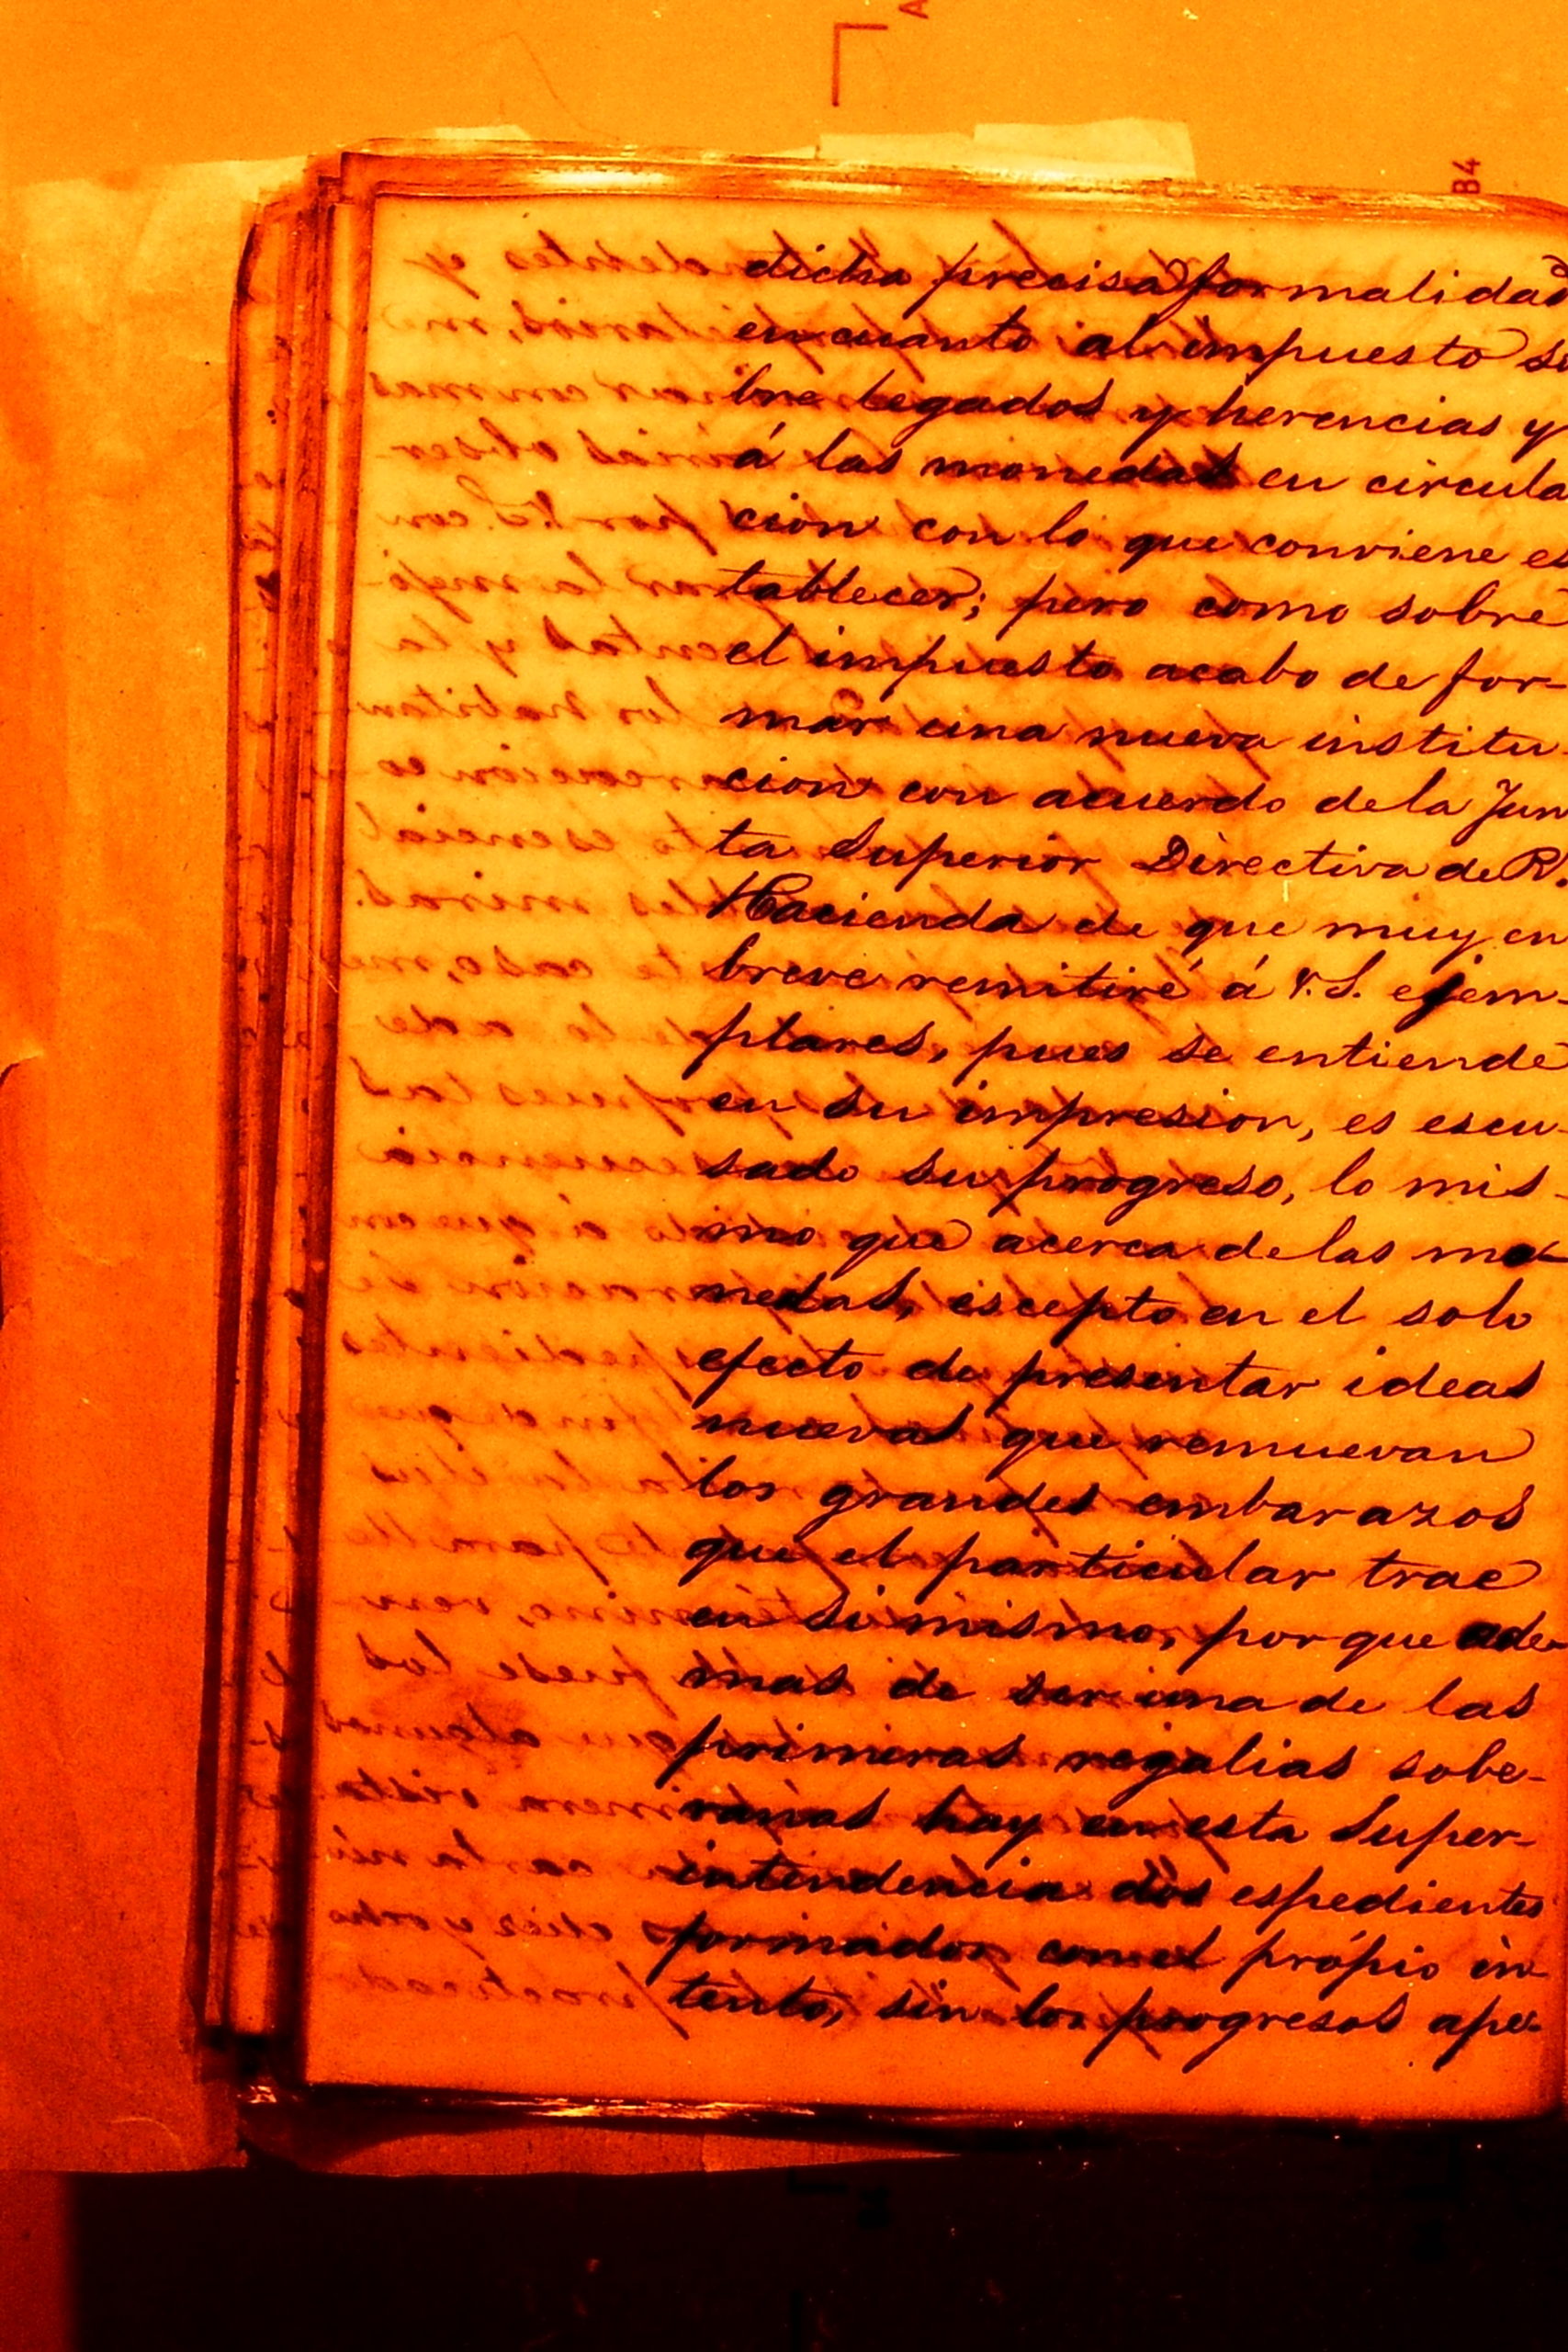 dicha precisa formalidad
en cuanto al impuesto so
bre legados y herencias y
á las monedas en circula
cion con lo que conviene es
tablecer; pero como sobre
el impuesto acabo de for-
mar una nueva institu-
cion con acuerdo de la Jun
ta Superior Directiva de R.
Hacienda de que muy en
breve remitiré á V.S. ejem-
plares, pues se entiende
en su impresion, es escu-
sado su progreso, lo mis-
mo que acerca de las mo-
nedas, escepto en el solo
efecto de presentar ideas
nuevas que remuevan
los grandes embarazos
que el particular trae
en si mismo, por que ade-
mas de ser una de las
primeras regalias sobe-
ranas hay en esta Super-
intendencia dos espedientes
formados con el própio in-
tento, sin los progresos ape-